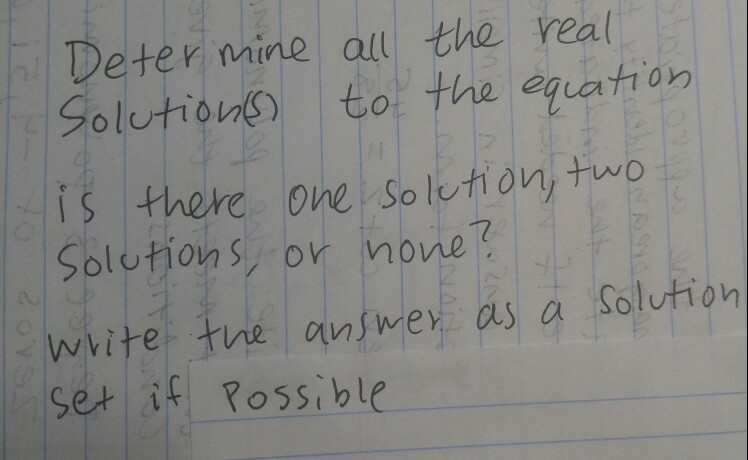 Determine all the real
Solution(s) to the equation
is there one solution, two
Solutions, or none?
write the answer as a solution
set if Possible